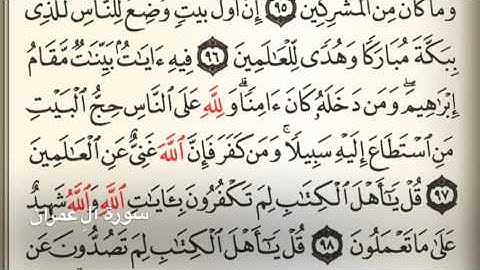 وَمَا كَانَ مِنَ الْمُشْرِكِينَ ٩٥ إِنَّ أَوَّلَ بَيْتٍ وُضِعَ لِلنَّاسِ لَلَّذِى
بِبَكَّةَ مُبَارَكًا وَهُدًى لِّلْعَالَمِينَ ٩٦ فِيهِ ءَايَاتٌ بَيِّنَاتٌ مَّقَامُ
إِبْرَاهِيمَ ۖ وَمَن دَخَلَهُ كَانَ ءَامِنًا ۗ وَلِلَّهِ عَلَى النَّاسِ حِجُّ الْبَيْتِ
مَنِ اسْتَطَاعَ إِلَيْهِ سَبِيلًا ۚ وَمَن كَفَرَ فَإِنَّ اللَّهَ غَنِيٌّ عَنِ الْعَالَمِينَ
٩٧ قُلْ يَا أَهْلَ الْكِتَابِ لِمَ تَكْفُرُونَ بِـَٔايَاتِ اللَّهِ وَاللَّهُ شَهِيدٌ
سورة آل عمران
عَلَىٰ مَا تَعْمَلُونَ ٩٨ قُلْ يَا أَهْلَ الْكِتَابِ لِمَ تَصُدُّونَ عَن